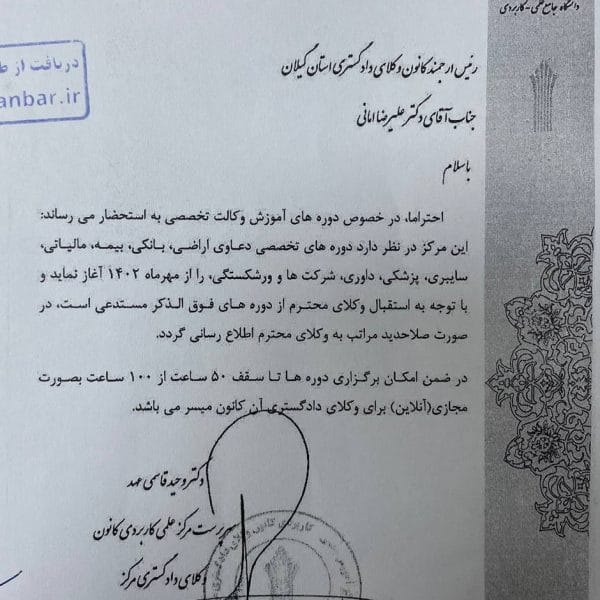 دانشگاه جامع علمی - کاربردی
دریافت از ط
anbar.ir
رئیس ارجمند کانون وکلای دادگستری استان گیلان
جناب آقای دکتر علیرضا امانی
باسلام
احتراما، در خصوص دوره های آموزش وکالت تخصصی به استحضار می رساند:
این مرکز در نظر دارد دوره های تخصصی دعاوی اراضی، بانکی، بیمه، مالیاتی،
سایبری، پزشکی، داوری، شرکت ها و ورشکستگی، را از مهرماه ۱۴۰۲ آغاز نماید و
با توجه به استقبال وکلای محترم از دوره های فوق الذکر مستدعی است، در
صورت صلاحدید مراتب به وکلای محترم اطلاع رسانی گردد.
در ضمن امکان برگزاری دوره ها تا سقف ۵۰ ساعت از ۱۰۰ ساعت بصورت
مجازی(آنلاین) برای وکلای دادگستری آن کانون میسر می باشد.
دکتر وحید قاسمی عهد
سرپرست مرکز علمی کاربردی کانون
وکلای دادگستری مرکز